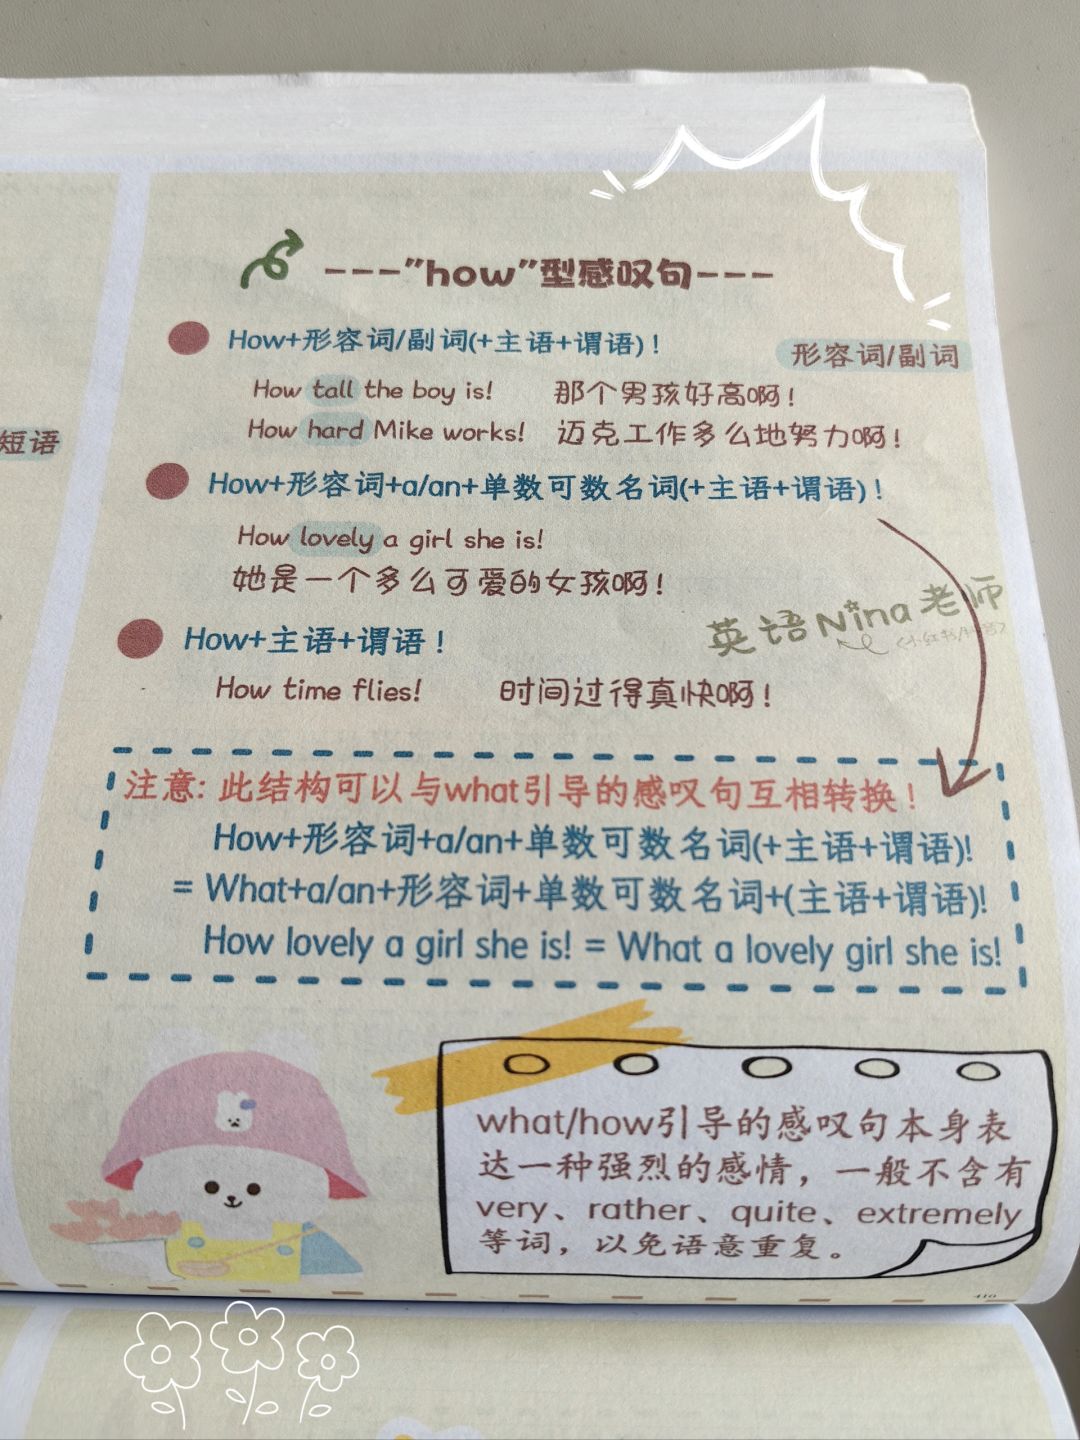 ---"how"型感叹句---
How+形容词/副词(+主语+谓语)!
形容词/副词
How tall the boy is! 那个男孩好高啊!
How hard Mike works! 迈克工作多么地努力啊!
短语
How+形容词+a/an+单数可数名词(+主语+谓语)!
How lovely a girl she is!
她是一个多么可爱的女孩啊!
英语Nina老师
How+主语+谓语!
How time flies! 时间过得真快啊!
注意: 此结构可以与what引导的感叹句互相转换!
How+形容词+a/an+单数可数名词(+主语+谓语)!
= What+a/an+形容词+单数可数名词+(主语+谓语)!
How lovely a girl she is! = What a lovely girl she is!
what/how引导的感叹句本身表
达一种强烈的感情，一般不含有
very、rather、quite、extremely
等词，以免语意重复。